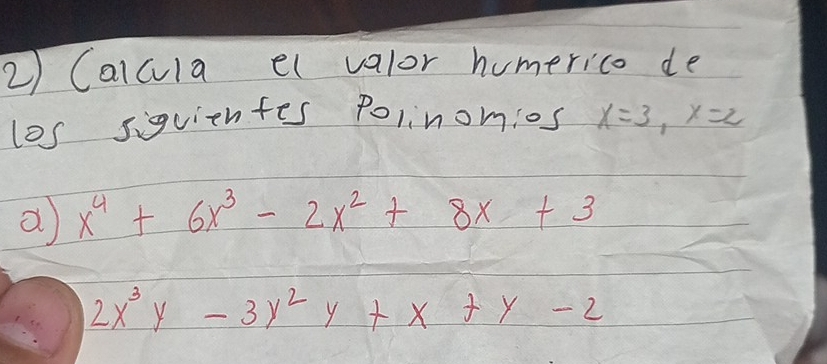 2) Calcula el valor humerico de
los siguientes Polinomios x=3, x=2
a) x⁴ + 6x³ - 2x² + 8x + 3
2x³y - 3y²y + x + y - 2